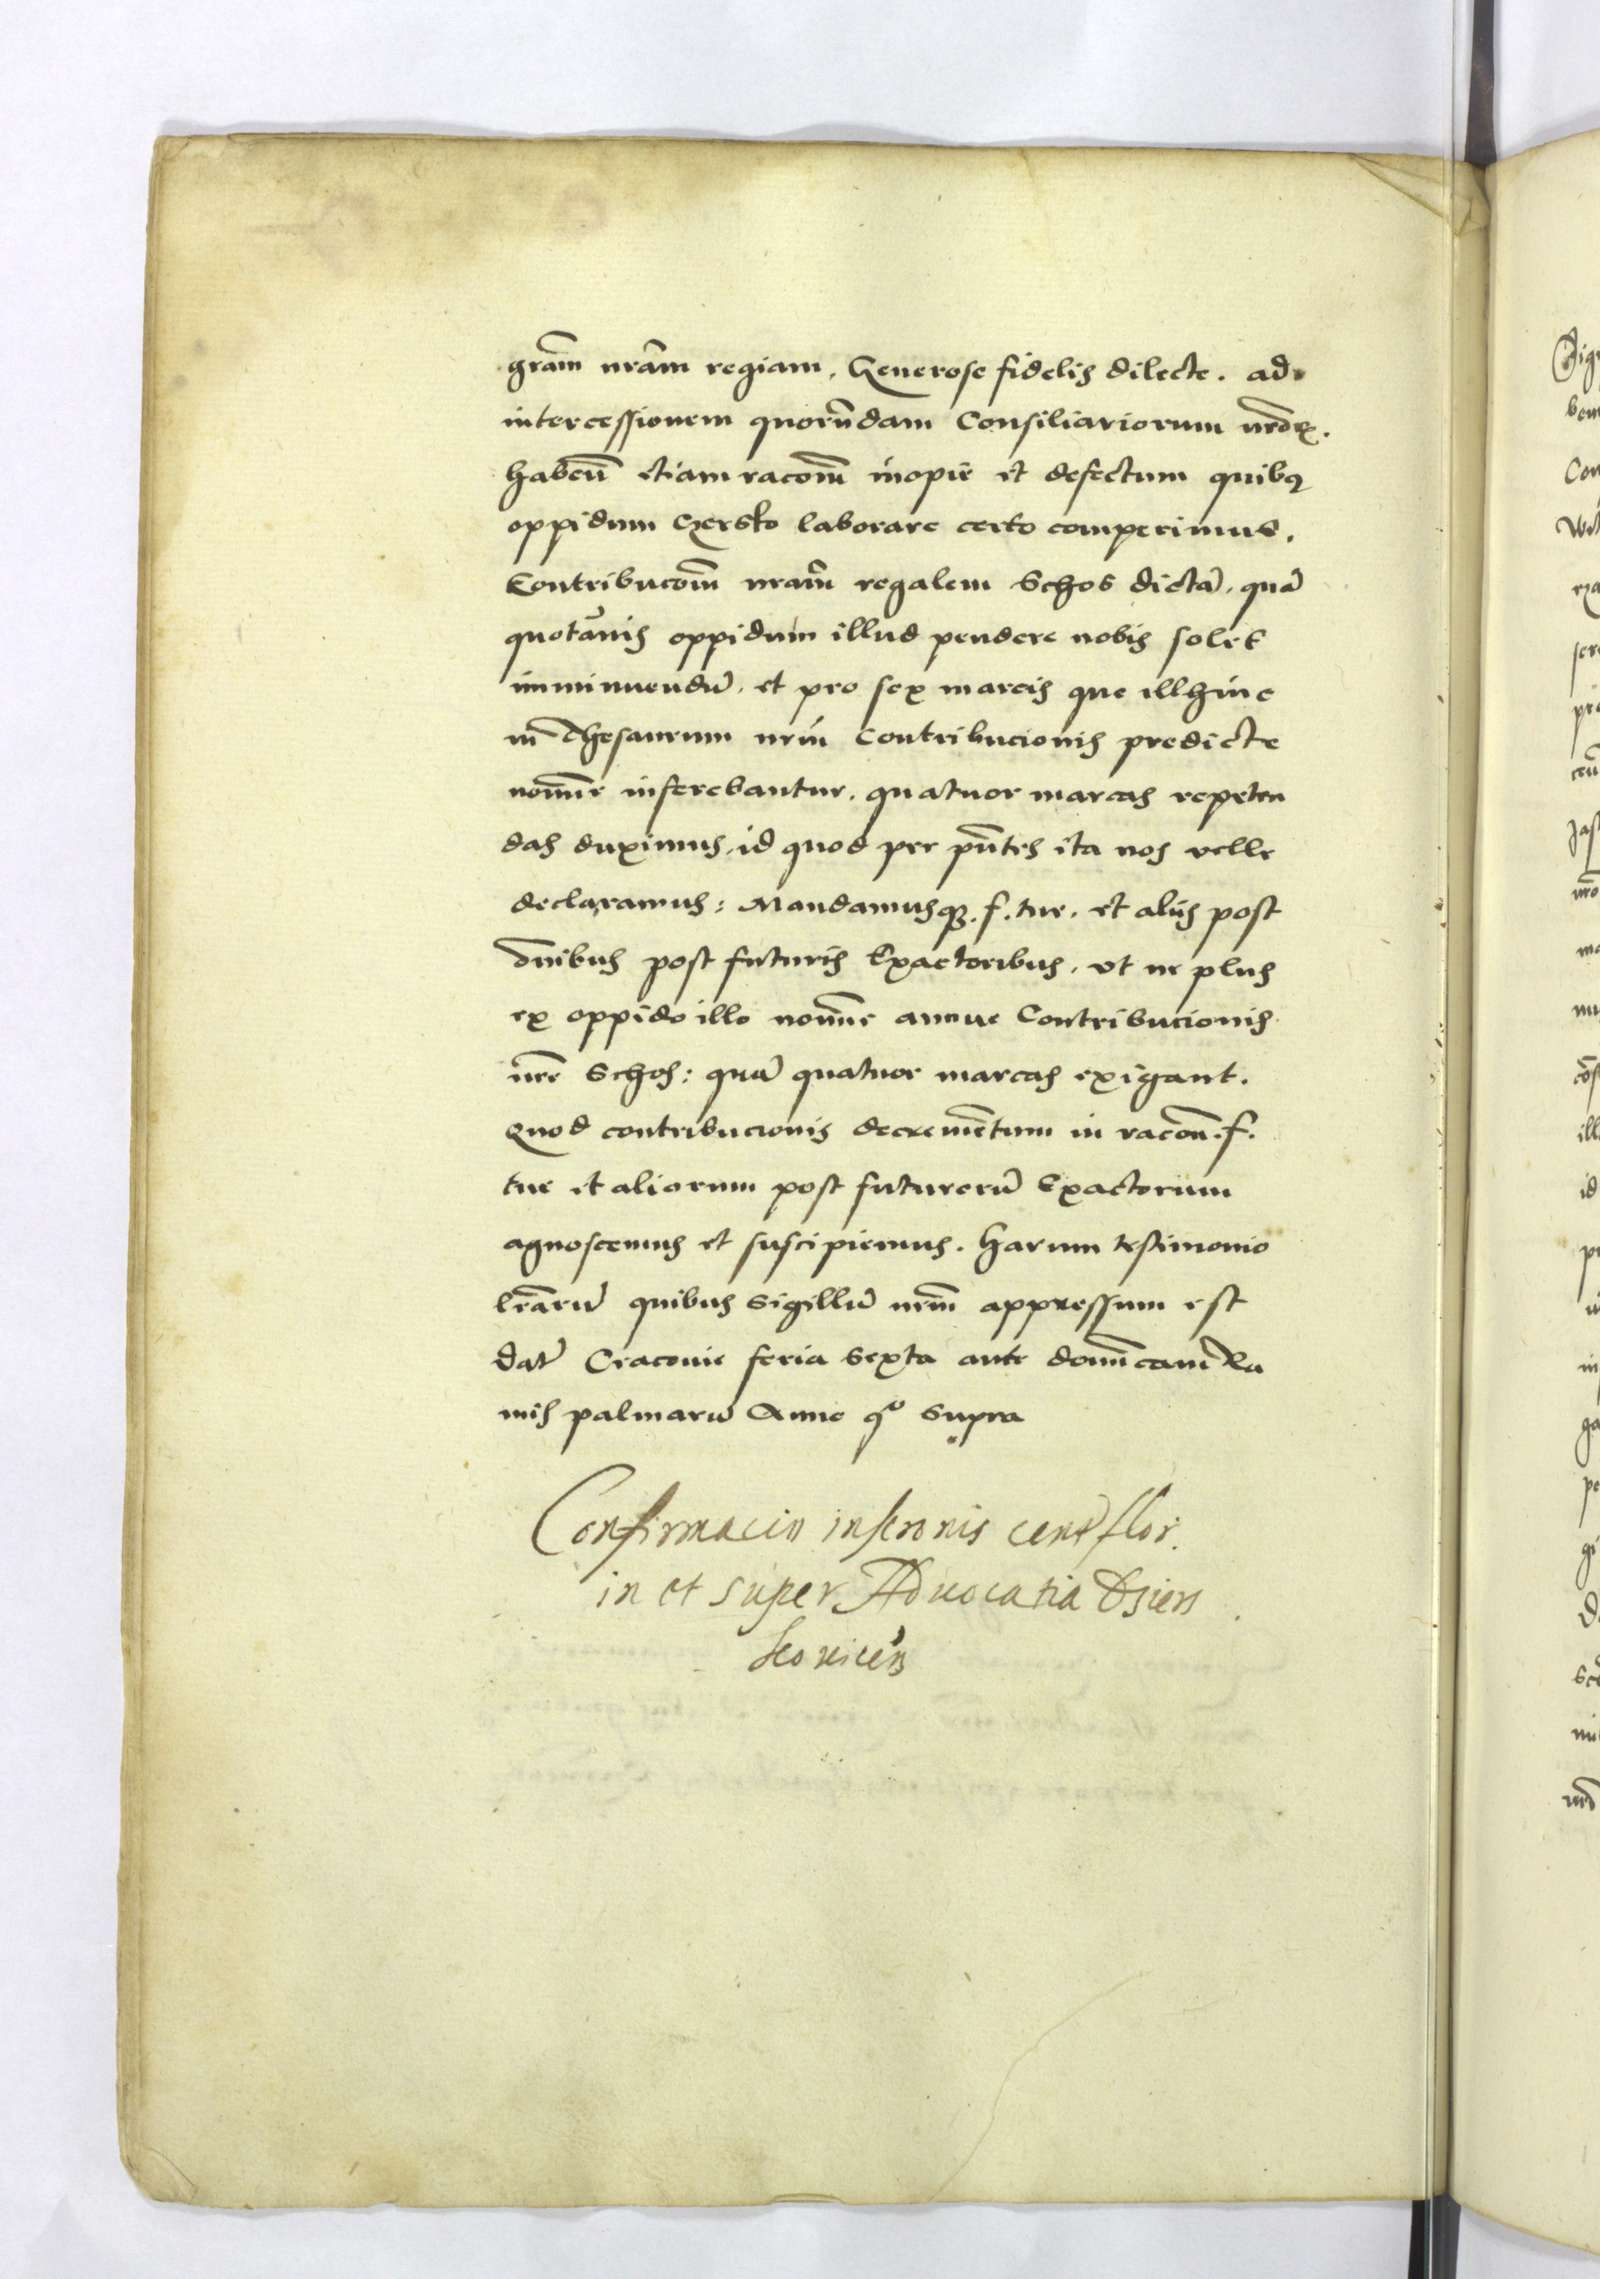 gram nram regiam. Generose fidelis dilecte. ad
intercessionem quorundam Consiliariorum nror.
habentes etiam racom inopie et defectum quibus
oppidum Czersko laborare certo comperimus.
Contribucom nram regalem Schos dictã. quã
quotãnis oppidum illud pendere nobis solet
imminuendũ. et pro sex marcis que illhinc
in Thesaurum nrm contribucionis predicte
nomine inferebantur. quatuor marcas repeten
das duximus. id quod per pñtes ita nos velle
declaramus: Mandamusq. f. tue. et aliis post
omnibus post futuris Exactoribus. ut ne plus
ex oppido illo nomine annue Contribucionis
nre Schos: quã quatuor marcas exigant.
Quod contribucionis decrementum in racom. f.
tue et aliorum post futurorũ Exactorum
agnoscemus et suscipiemus. Harum testimonio
lrarũ quibus Sigillũ nrm appressum est
Dat Cracovie feria Sexta ante domicam Ra
mis palmarũ Anno qo Supra
Confirmacio inscronis cent flor.
in et super Advocatia